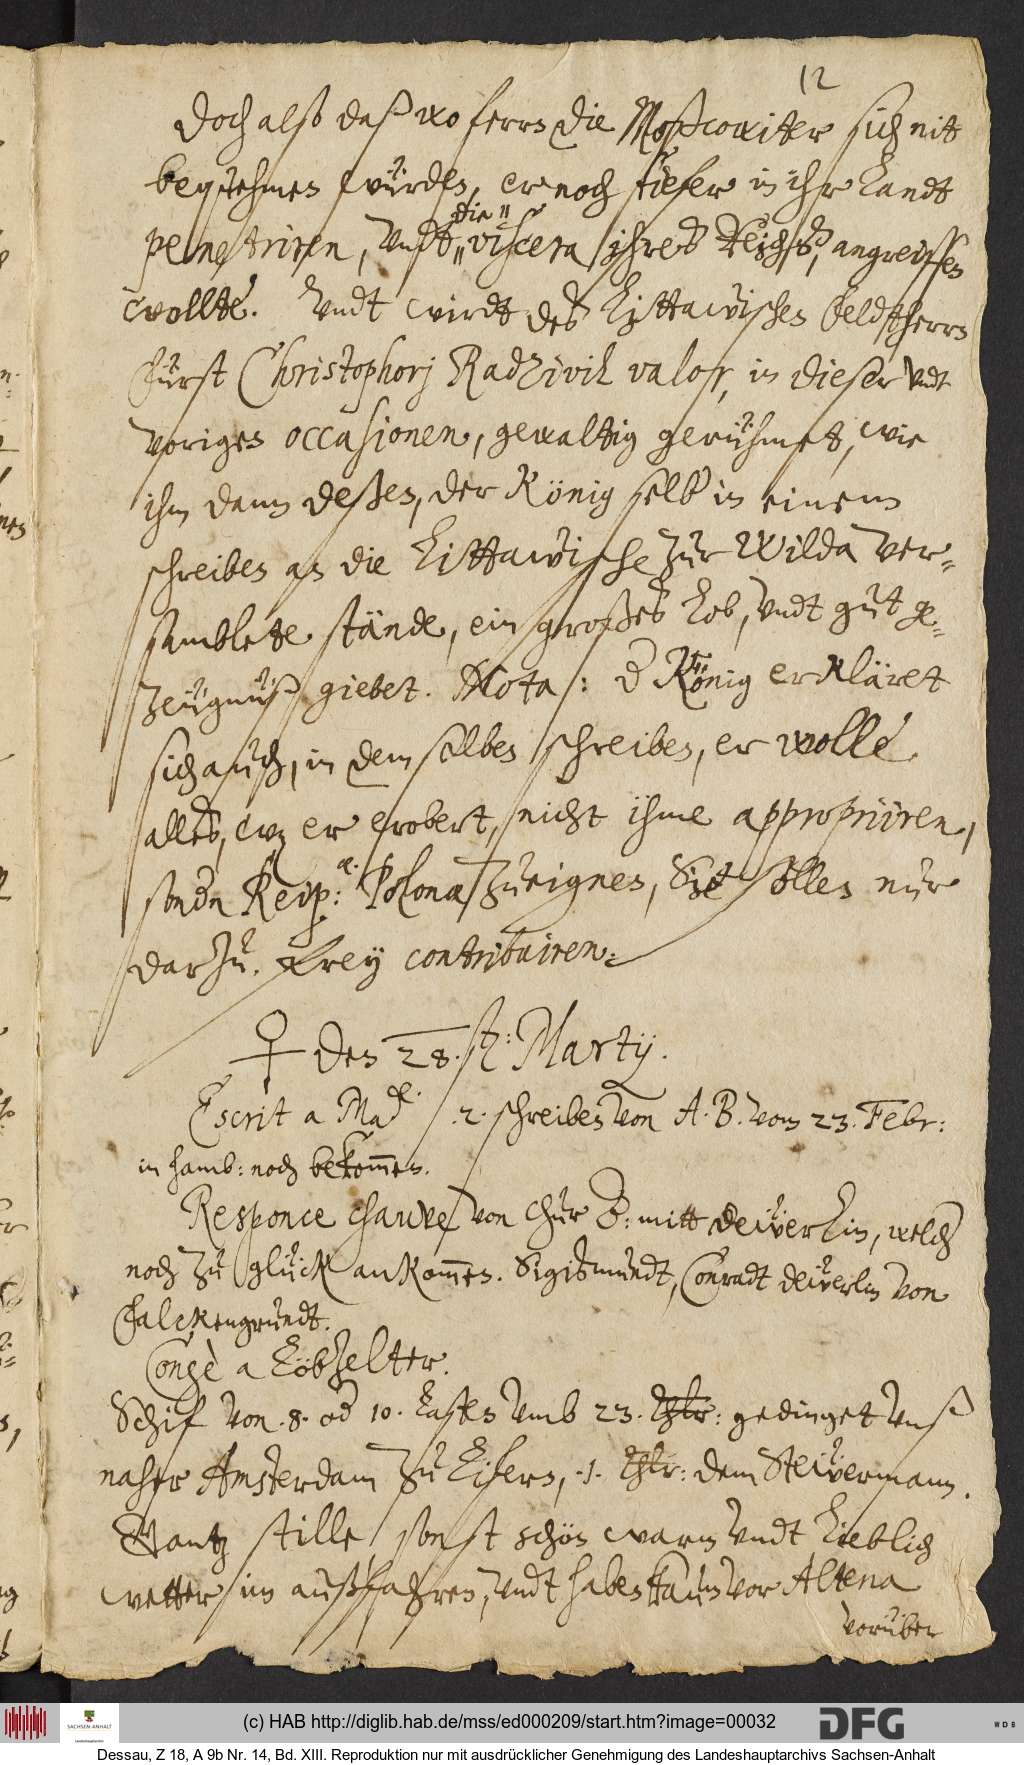 12
Doch alß daß wo ferrn die Moßcowiter sich nit
bequehmen würden, er noch tiefer in ihr Landt
penetriren, undt die viscera ihres Reichs, angreiffen
wollte. Undt wirdt des Littawischen Feldtherrn
Fürst Christophorj Radzivil valor, in dieser undt
vorigen occasionen, gewaltig gerühmet, wie
ihm dann deßen, der König selb in einem
schreiben an die Littawische zur Wilda ver-
samblete stände, ein großes Lob, undt gut ge-
zeugnüß giebet. Nota: d König erkläret
sich auch, in dem selben schreiben, er wolle
alles, wz er erobert, nicht ihme appropriiren,
sondn Reip: Polonæ zueignen, Sie sollen nur
darzu. frey contribuiren.
♀ den 28. st: Martij.
Escrit a Mad.e 2. schreiben von A. B. vom 23. Febr:
in hamb: noch bekommen.
Responce chauve von Chur B: mitt deüverlin, welch
noch zu glück ankommen. Sigismundt, Conradt deüverlin von
Falckengrundt.
Congè a Löbzelter.
Schif von 8. od 10. Lasten umb 23. Thlr: gedinget unß
naher Amsterdam zu liefern, .1. Thlr: dem Steüermann.
Gantz stille sonst schön warm undt lieblich
wetter im außfahren, undt haben kaum vor Altena
vorüber
(c) HAB http://diglib.hab.de/mss/ed000209/start.htm?image=00032
SACHSEN-ANHALT
DFG
WDB
Dessau, Z 18, A 9b Nr. 14, Bd. XIII. Reproduktion nur mit ausdrücklicher Genehmigung des Landeshauptarchivs Sachsen-Anhalt